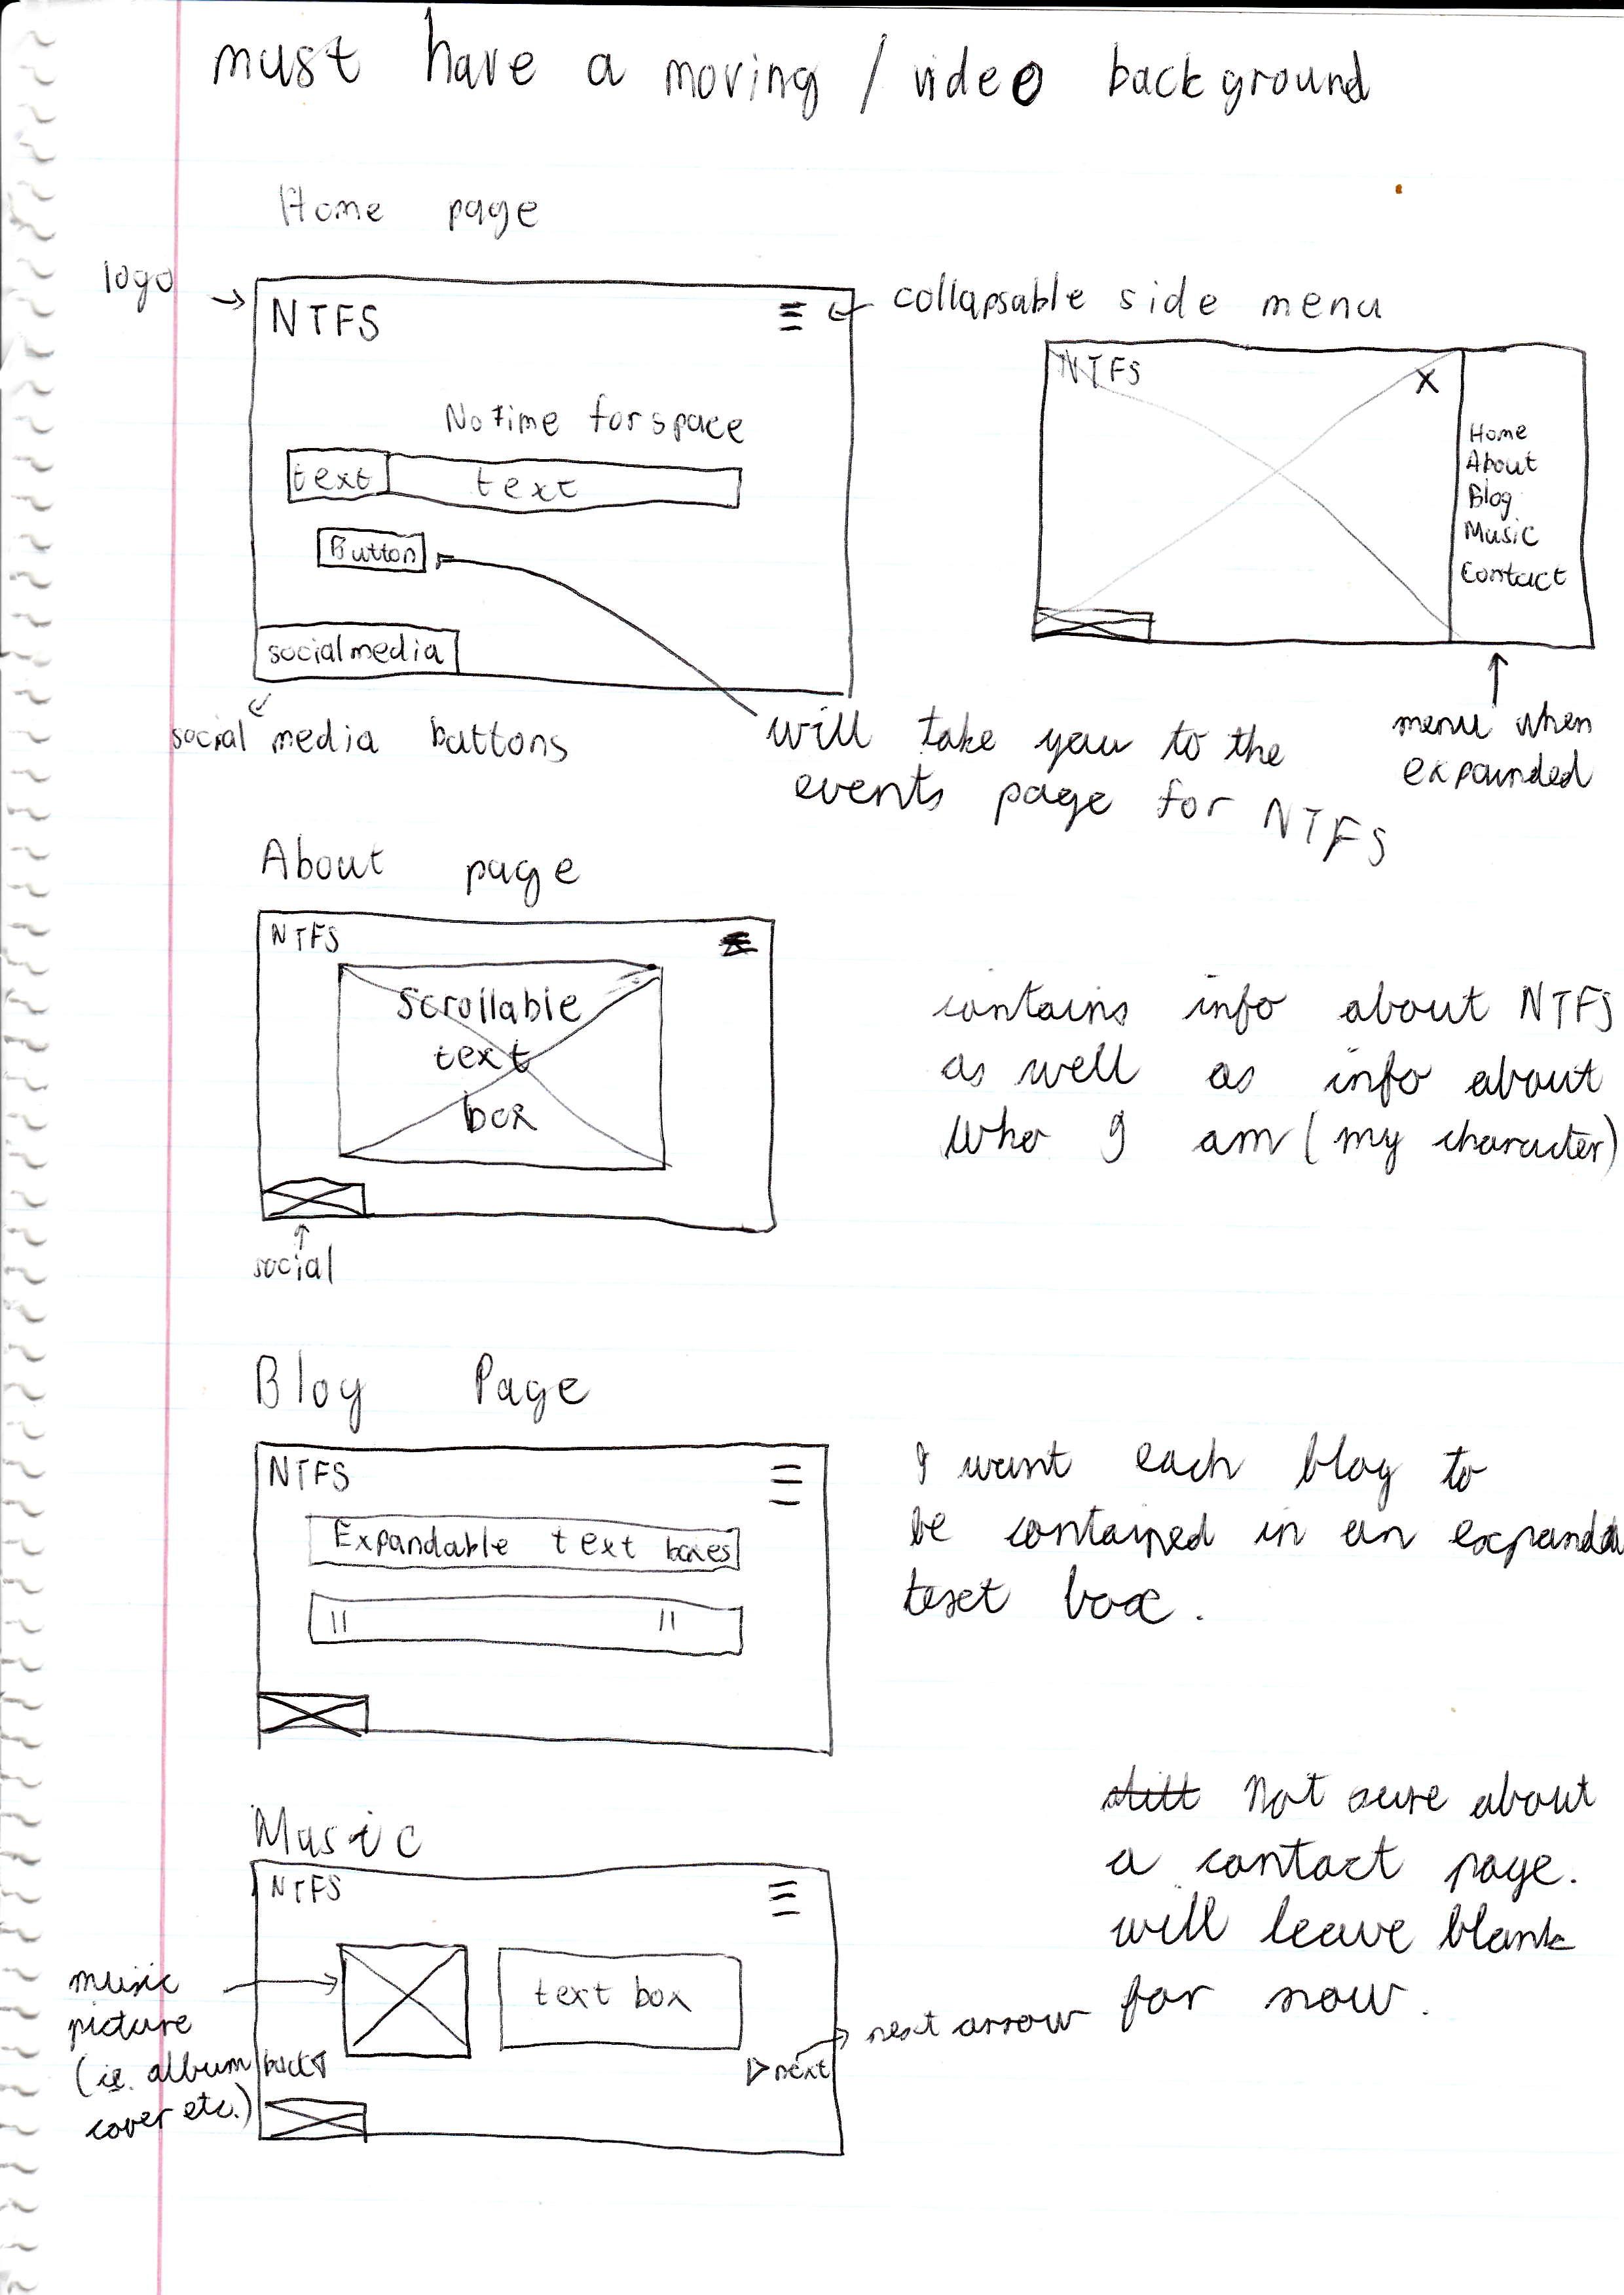 must have a moving / video background
Home page
logo
NTFS
collapsable side menu
No time for space
text
text
Button
social media
social media buttons
will take you to the
events page for NTFS
NTFS
X
Home
About
Blog
Music
Contact
menu when
expanded
About page
NTFS
Scrollable
text
box
social
contains info about NTFS
as well as info about
who I am (my character)
Blog Page
NTFS
Expandable text boxes
11 11
I want each blog to
be contained in an
text box.
Music
NTFS
text box
back
next
next arrow
music
picture
(ie. album
cover etc.)
still Not sure about
a contact page.
will leave blank
for now.